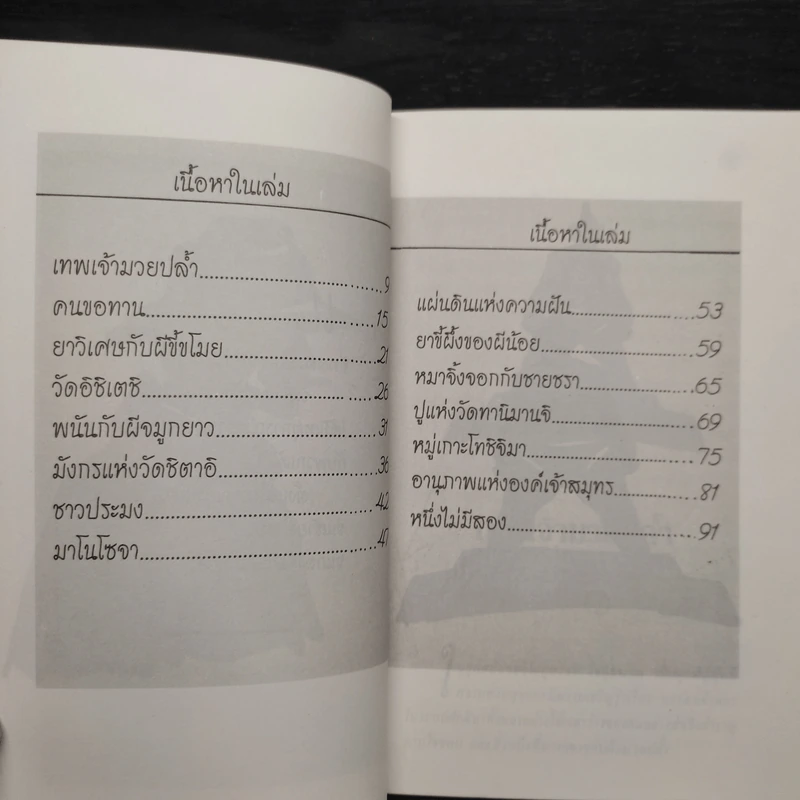 เนื้อหาในเล่ม
เทพเจ้ามวยปล้ำ.......................... 9
คนขอทาน.......................... 15
ยาวิเศษกับผีขี้ขโมย.......................... 21
วัดอิชิเตชิ.......................... 26
พนันกับผีจมูกยาว.......................... 31
มังกรแห่งวัดชิตาอิ.......................... 36
ชาวประมง.......................... 42
มาโนโซจา.......................... 47
เนื้อหาในเล่ม
แผ่นดินแห่งความฝัน.......................... 53
ยาขี้ผึ้งของผีน้อย.......................... 59
หมาจิ้งจอกกับชายชรา.......................... 65
ปูแห่งวัดทานิมานจิ.......................... 69
หมู่เกาะโทชิจิมา.......................... 75
อานุภาพแห่งองค์เจ้าสมุทร.......................... 81
หนึ่งไม่มีสอง.......................... 91